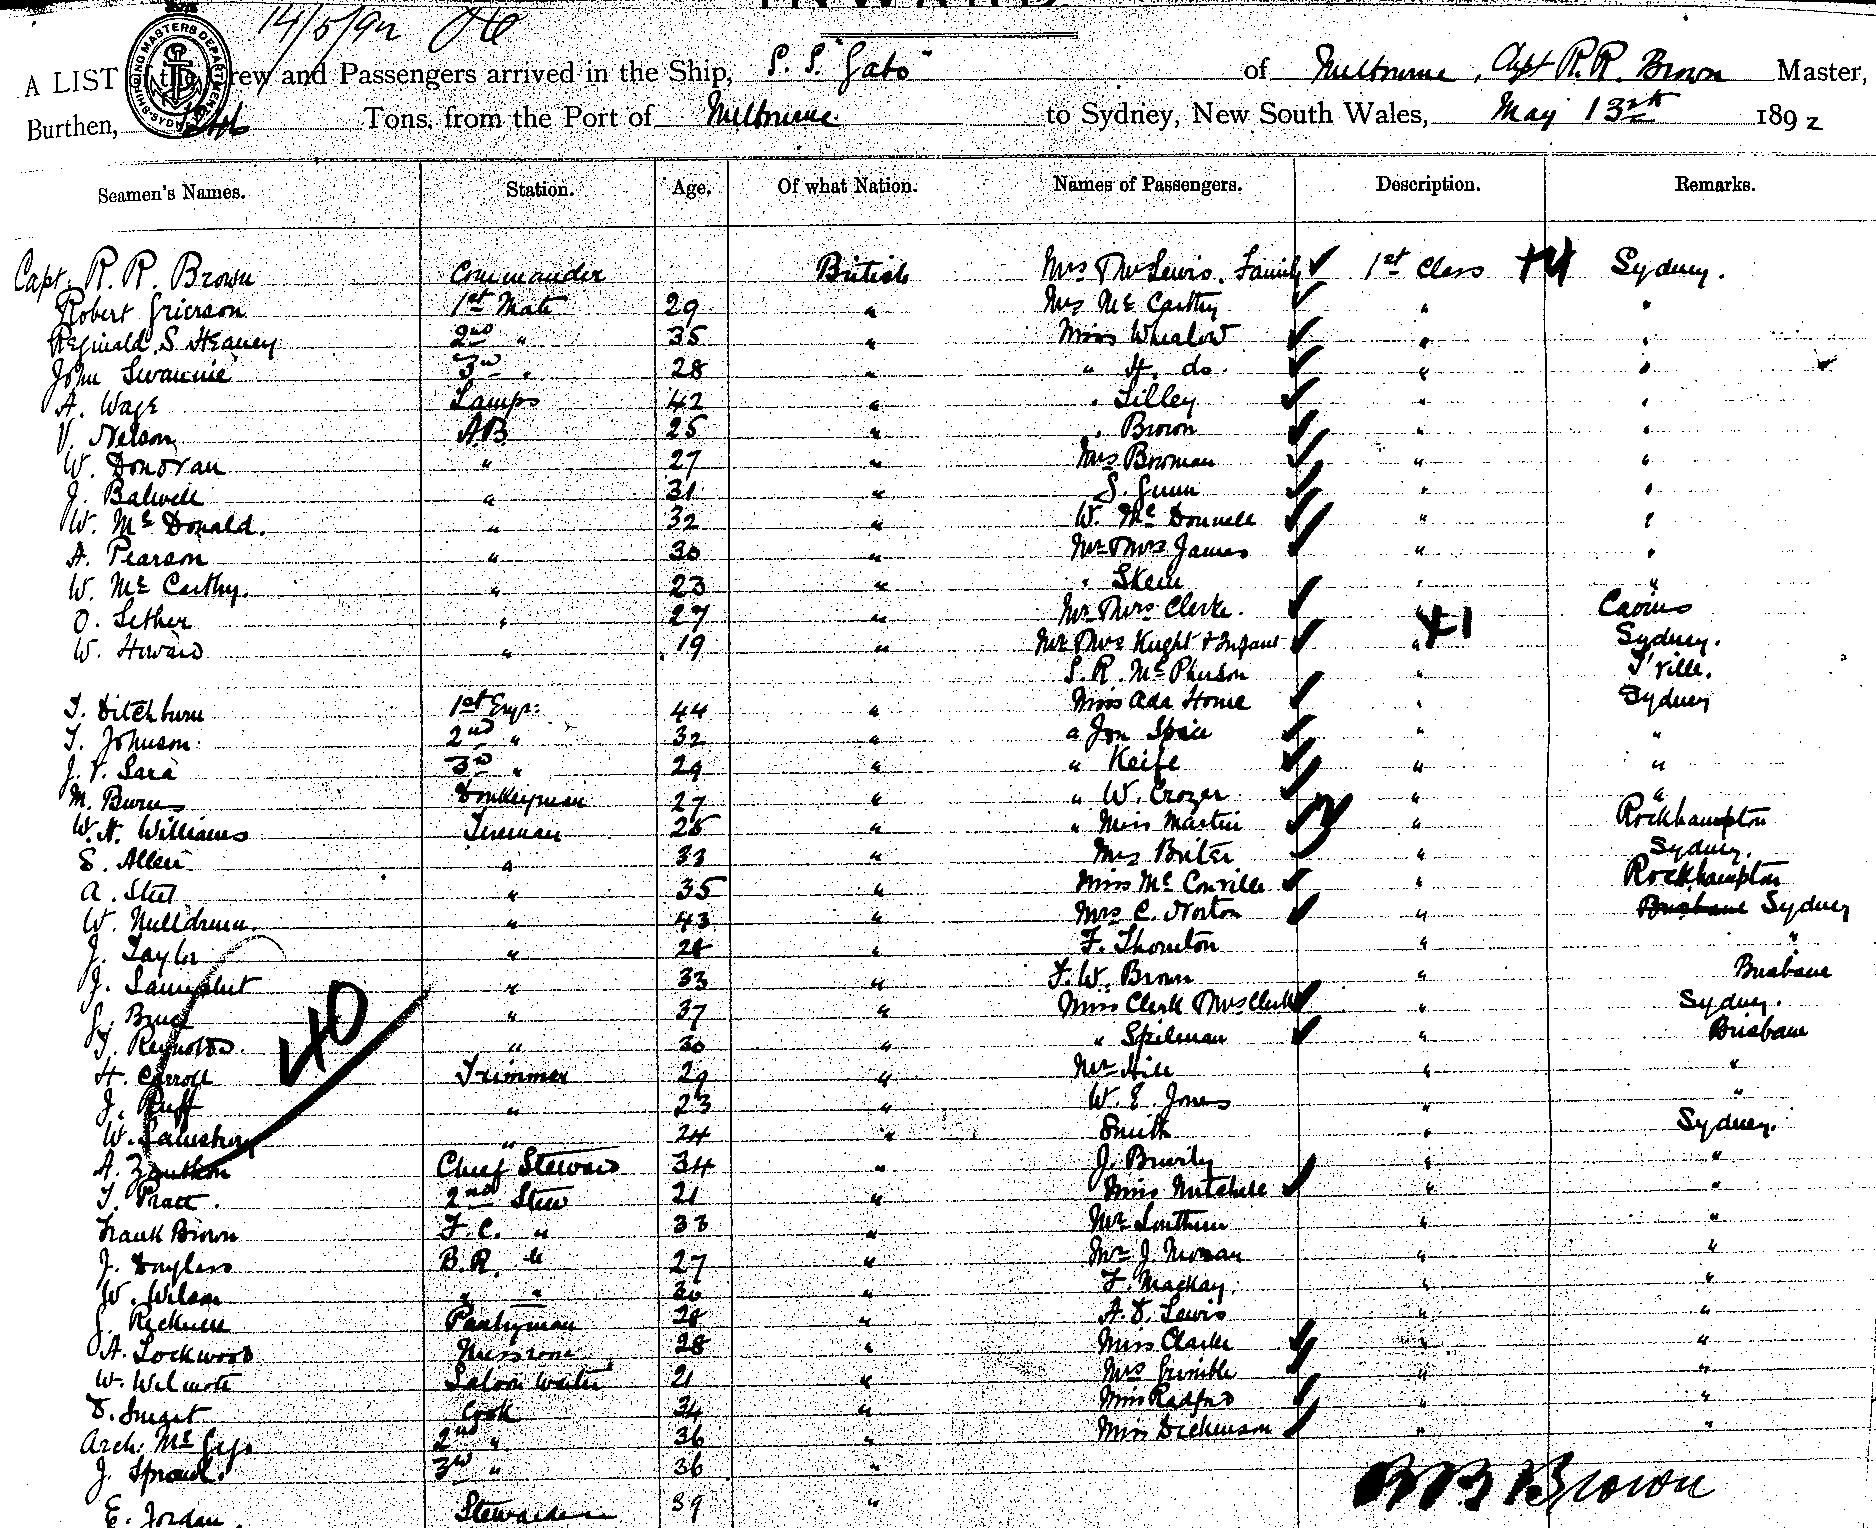 14/5/92
A LIST of the Crew and Passengers arrived in the Ship, S. S. "Gabo" of Melbourne, Capt R. R. Brown Master,
Burthen, Tons, from the Port of Melbourne to Sydney, New South Wales, May 13th 1892
Seamen's Names. Station. Age. Of what Nation. Names of Passengers. Description. Remarks.
Capt. R. R. Brown Commander British Mrs Lewis. Family 1st Class 44 Sydney.
Robert Grierson 1st Mate 29 " Mrs Mc Carthy " "
Reginald S Heaney 2nd " 35 " Miss Whealow " "
John Swannie 3rd " 28 " " H. do. " "
A. Wage Lamps 42 " " Lilley " "
V. Nelson AB 25 " " Brown " "
W. Donovan " 27 " Mrs Bowman " "
J. Balwell " 31 " S. Gunn " "
W. Mc Donald. " 32 " W. Mc Donnell " "
A. Pearson " 30 " Mr & Mrs James " "
W. Mc Carthy. " 23 " " " "
O. Sether " 27 " Mr & Mrs Clerke. " Cairns
W. Howard " 19 " Mr & Mrs Knight & Infant " 41 Sydney.
S. R. Mc Pherson " T'ville.
T. Ditchburn 1st Engr: 44 " Miss Ada Home " Sydney
T. Johnson 2nd " 32 " " "
J. V. Sara 3rd " 29 " " Keife " "
M. Burns Donkeyman 27 " " W. Crozer " "
W. H. Williams Fireman 25 " " Miss Martin " Rockhampton
E. Allen " 33 " Mrs " Sydney.
A. Steel " 35 " Miss Mc Conville " Rockhampton
W. Mulldrum. " 43 " Mrs C. Norton " Brisbane Sydney
J. Taylor " 28 " F. Thornton " "
J. " 33 " F. W. Brown " Brisbane
J. Bruce " 37 " Miss Clerk & Mrs Clerk " Sydney.
T. Reynolds. " 30 " " Spilman " Brisbane
H. Carroll Trimmer 29 " Mr Hill " "
J. Ruff " 23 " W. E. Jones " "
W. Sainsbury " 24 " Smith " Sydney.
40
A. Chief Steward 34 " J. " "
T. Pratt. 2nd Stew 21 " Miss Mitchell " "
Frank Brown F.C. " 33 " Mr " "
J. Bayless B.R. " 27 " Mr J. " "
W. Wilson " " 30 " F. Mackay. " "
J. Pantryman 28 " A. D. Lewis " "
A. Lockwood Messroom 28 " Miss Clarke " "
W. Wilmott Saloon Waiter 21 " Mrs Grimble " "
D. Cook 34 " Miss Radford " "
Arch. Mc 2nd " 36 " Miss Dickenson " "
J. Sproul. 3rd " 36 "
R R Brown
E. Jordan. Stewardess 39 "